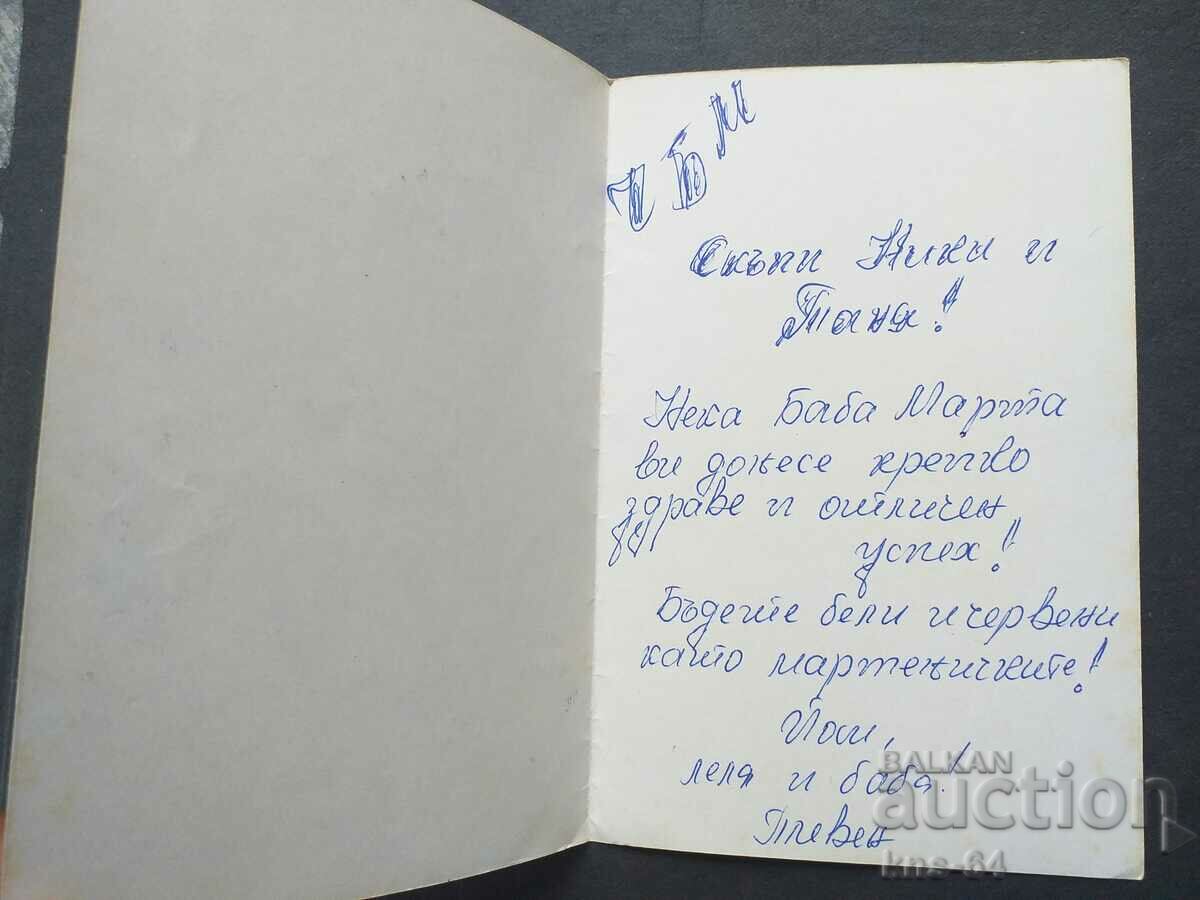 ЧБМ
Скъпи Ники и
Таня!
Нека Баба Марта
ви донесе крепко
здраве и отличен
успех!
Бъдете бели и червени
като мартеничките!
Йоли,
леля и баба!
Плевен
BALKAN
auction
kns-64